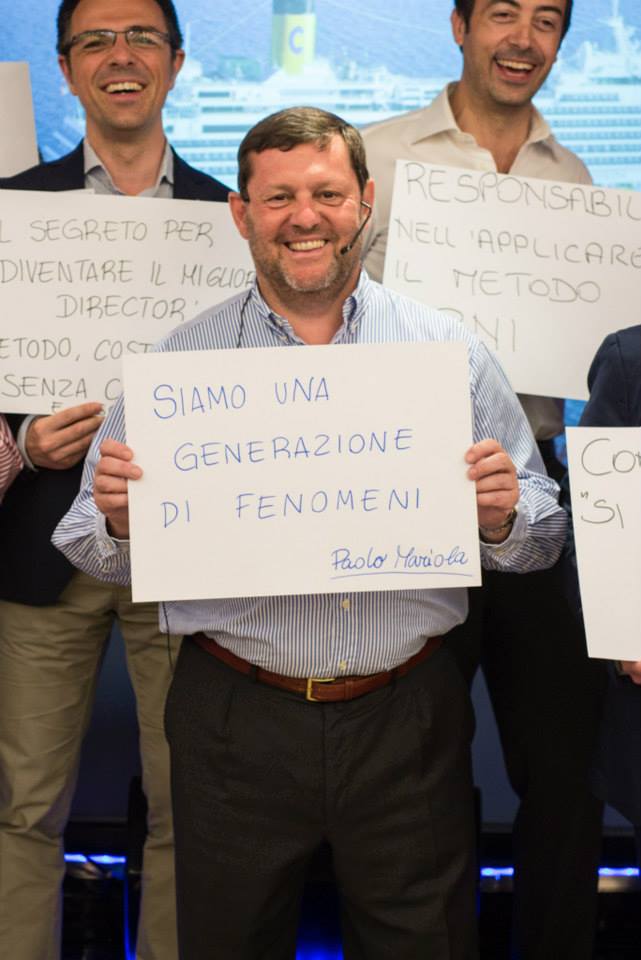 L SEGRETO PER
DIVENTARE IL MIGLIOR
DIRECTOR'
ETODO, COST
SENZA C
RESPONSABIL
NELL'APPLICARE
IL METODO
RNI
SIAMO UNA
GENERAZIONE
DI FENOMENI
Paolo Mariola
Co
"SI
C